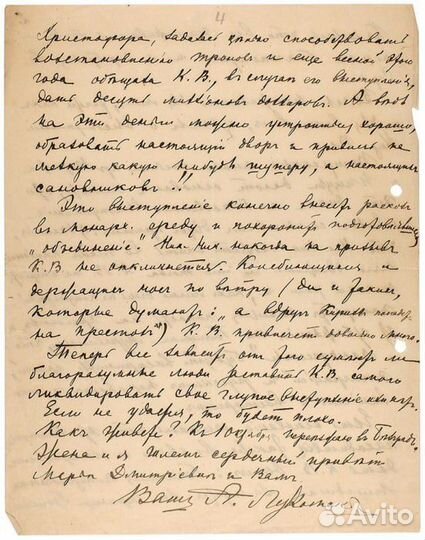 4
Христофора, задался целью способствовать
возстановленiю троновъ и еще весной этого
года обѣщала К.В., въ случаѣ его выступленiя,
дать десять миллiоновъ долларовъ. А вѣдь
на эти деньги можно устроиться хорошо,
образовать настоящiй дворъ и привлечь не
мелкую какую нибудь шушеру, а настоящихъ
сановниковъ!!
Это выступленiе конечно внесетъ расколъ
въ монарх. среду и похоронитъ
"объединенiе". Ник. Ник. никогда на призывъ
К.В не откликнется. Колеблющихся и
держащихъ носъ по вѣтру (да и такихъ,
которые думаютъ: "а вдругъ Кириллъ
на престолъ") К.В. привлечетъ довольно много.
Теперь все зависитъ отъ того сумѣютъ ли
благоразумные люди заставить К.В. самого
ликвидировать свое глупое выступленiе или нѣтъ.
Если не удастся, то будетъ плохо.
Какъ живете? Къ 10 переѣзжаю въ Бѣлградъ.
Ирена и я шлемъ сердечный привѣтъ
Марiи Дмитрiевнѣ и Вамъ
Вашъ А.
Avito